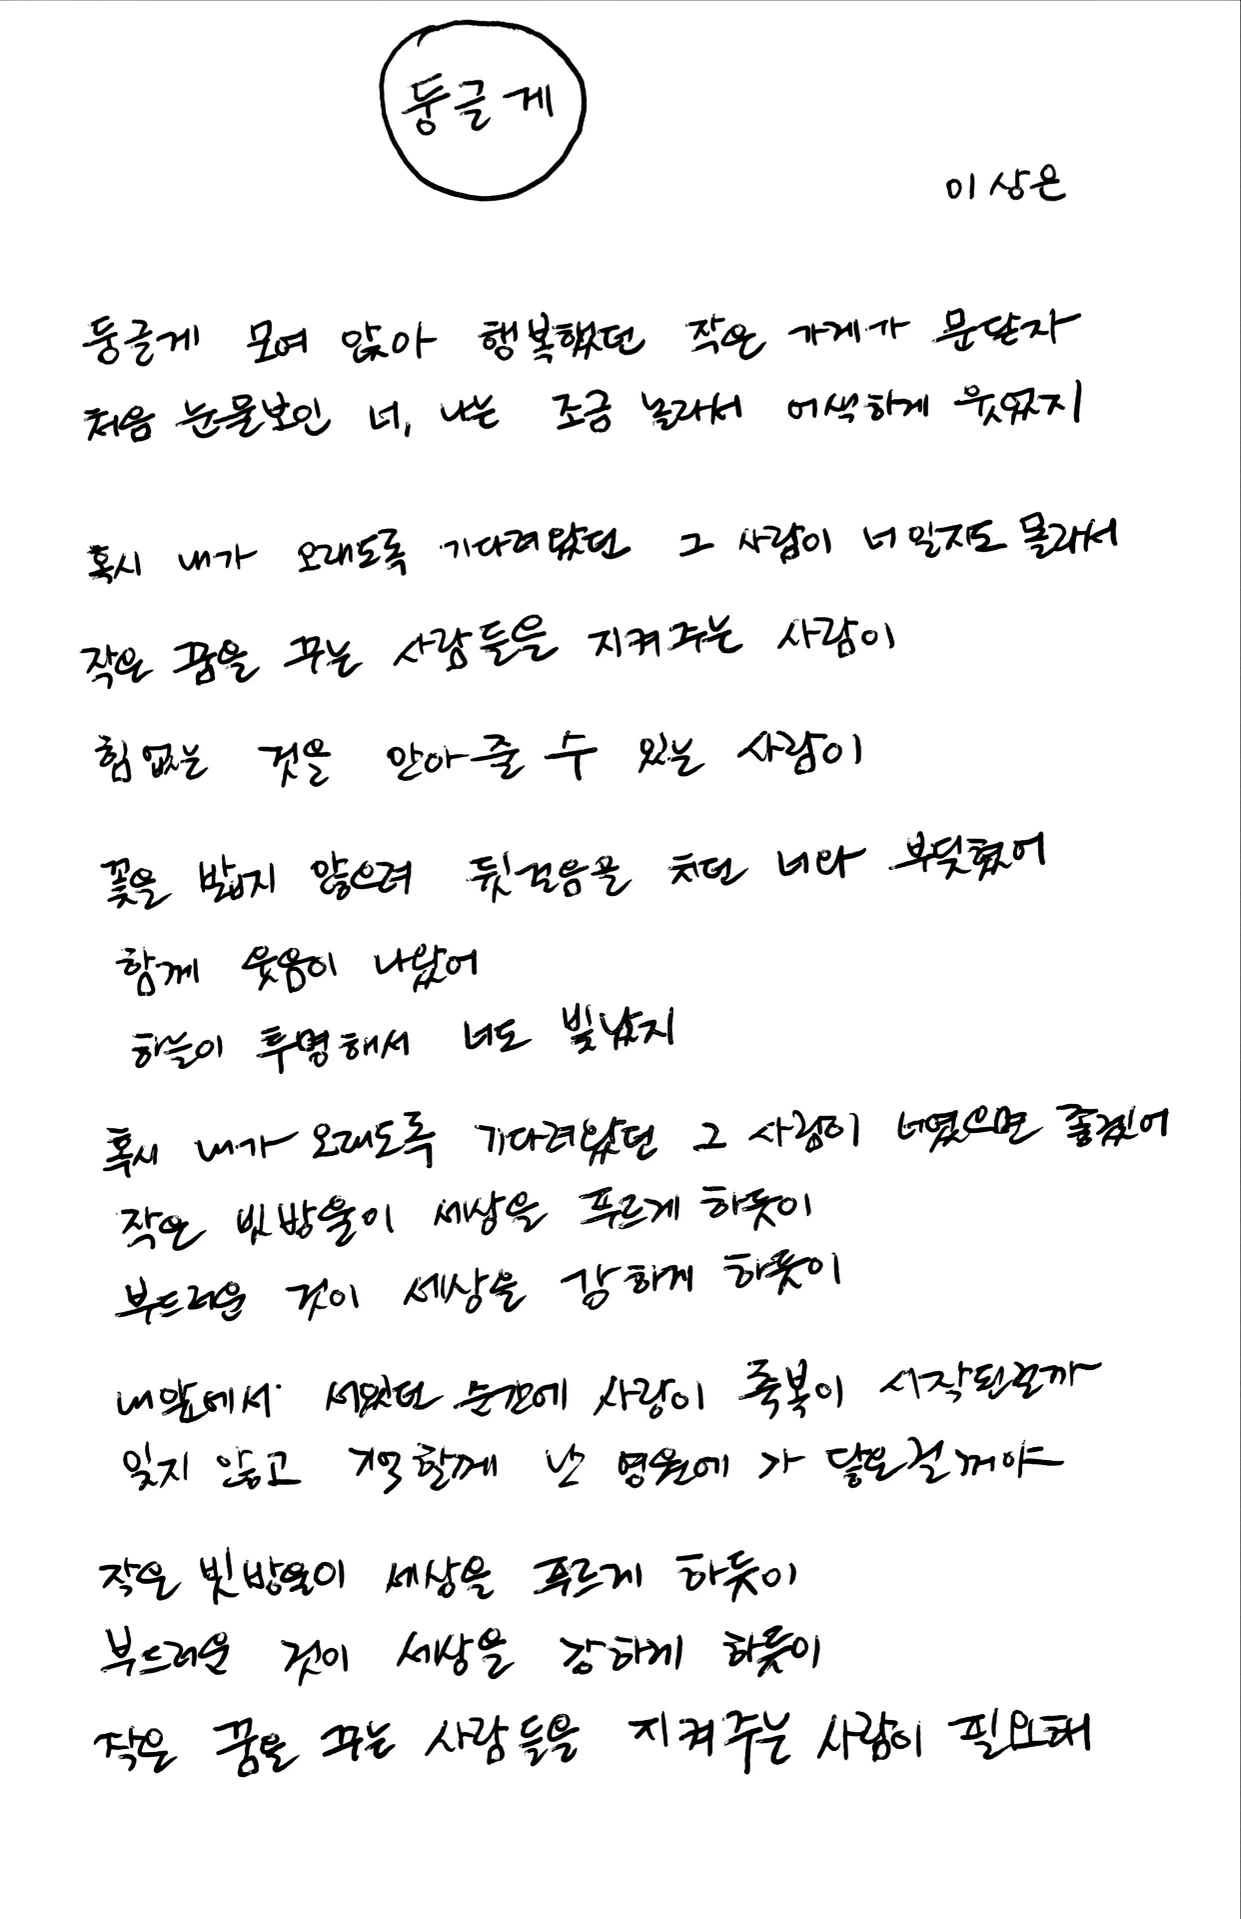 둥글게
이상은
둥글게 모여 앉아 행복했던 작은 가게가 문닫자
처음 눈물보인 너, 나는 조금 놀라서 어색하게 웃었지
혹시 내가 오래도록 기다려왔던 그 사람이 너일지도 몰라서
작은 꿈을 꾸는 사람들을 지켜주는 사람이
힘없는 것을 안아줄 수 있는 사람이
꽃을 밟지 않으려 뒷걸음을 치던 너와 부딪혔어
함께 웃음이 나왔어
하늘이 투명해서 너도 빛났지
혹시 내가 오래도록 기다려왔던 그 사람이 너였으면 좋겠어
작은 빗방울이 세상을 푸르게 하듯이
부드러운 것이 세상을 강하게 하듯이
내앞에서 서있던 순간에 사랑이 축복이 시작된걸까
잊지 않고 기억할께 난 영원에 가 닿은걸꺼야
작은 빗방울이 세상을 푸르게 하듯이
부드러운 것이 세상을 강하게 하듯이
작은 꿈을 꾸는 사람들을 지켜주는 사람이 필요해